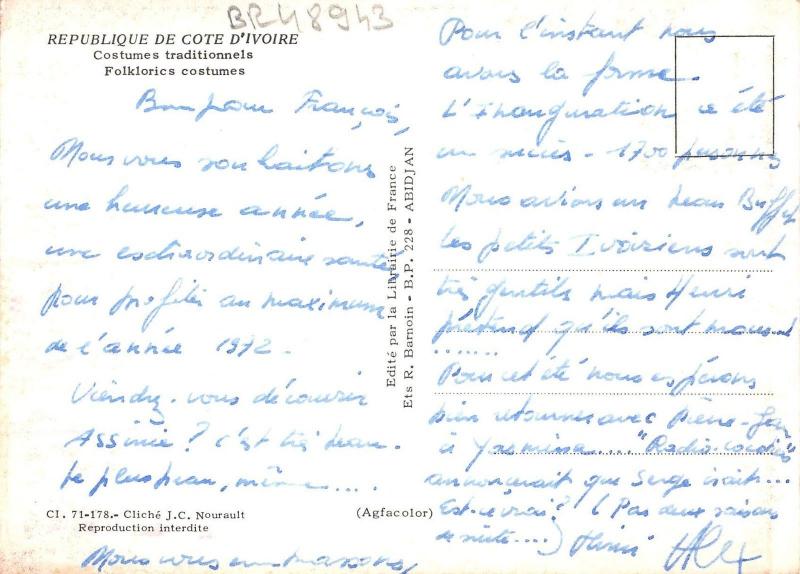 BR48943
REPUBLIQUE DE COTE D'IVOIRE
Costumes traditionnels
Folklorics costumes
Bonjour François,
Nous vous souhaitons
une heureuse année,
une extraordinaire santé
pour profiter au maximum
de l'année 1972.
Viendrez-vous découvrir
Assinie? C'est très beau.
Le plus beau, même....
CI. 71-178.- Cliché J.C. Nourault
Reproduction interdite
(Agfacolor)
Nous vous embrassons,
Edité par la Librairie de France
Ets R. Barnoin - B.P. 228 - ABIDJAN
Pour l'instant nous
avons la forme.
L'Inauguration a été
un succès - 1700 personnes
Nous avions un beau Buffet
Les petits Ivoiriens sont
très gentils mais Henri
prétend qu'ils sont
........
Pour cet été nous espérons
bien retourner avec Pierre-Jean
à Yasmina.... "Radio-cocotier"
annonçerait que Serge irait...
Est-ce vrai? (Pas deux saisons
de suite....) Henri Alex